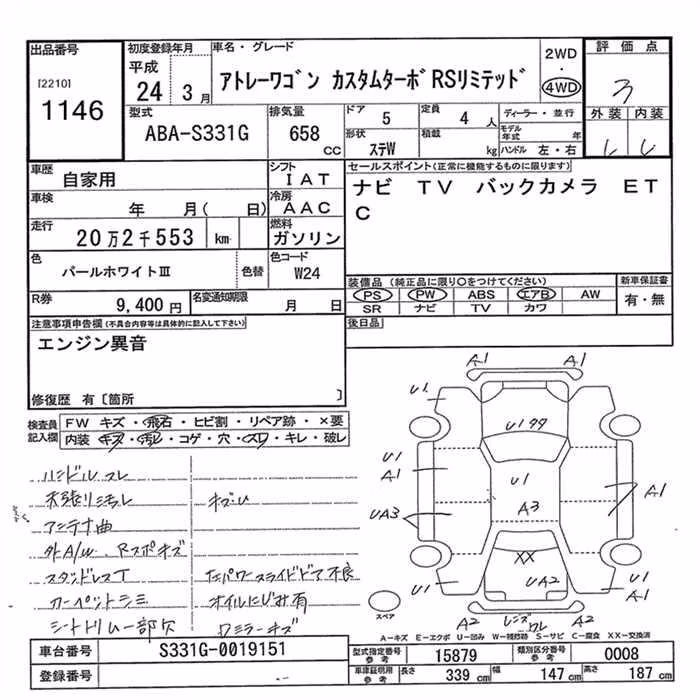 出品番号
[2210]
1146
初度登録年月
平成
24 3月
車名・グレード
アトレーワゴン カスタムターボRSリミテッド
2WD
・
4WD
評価点
3
外装 内装
型式
ABA-S331G
排気量
658 CC
ドア
5
定員
4 人
ディーラー・並行
形状
ステW
積載
kg
モデル年式 年
ハンドル 左・右
車歴
自家用
シフト
IAT
セールスポイント(正常に機能するものに限ります)
ナビ TV バックカメラ ET
C
車検
年 月( 日)
冷房
AAC
走行
20万2千553 km
燃料
ガソリン
色
パールホワイトⅢ
色替
色コード
W24
装備品 (純正品に限り○をつけてください)
PS PW ABS エアB AW
SR ナビ TV カワ
新車保証書
有・無
R券
9,400円
名変通知期限
月 日
後日品
注意事項申告欄(不具合内容等は具体的に記入して下さい)
エンジン異音
修復歴 有〔箇所 〕
検査員記入欄
FW キズ・飛石・ヒビ割・リペア跡・×要
内装・キズ・汚レ・コゲ・穴・スレ・キレ・破レ
ハンドルスレ
天張リ汚レ
アンテナ曲
外A/W Rスポキズ
スタッドレスT
左パワースライドドア不良
カーペットシミ
オイルにじみ有
シートトリム一部欠
ワミラーキズ
A1 A1
U1 U1
U1 A1
U1
A3
UA3
A1
XX
UA2
U1
U1
A1
スペア
A2
レンズワレ
A2
A-キズ E-エクボ U-凹み W-補修跡 S-サビ C-腐食 XX-交換済
車台番号
S331G-0019151
型式指定番号 参考
15879
類別区分番号 参考
0008
登録番号
車庫証明用 参考
長さ
339 cm
幅
147 cm
高さ
187 cm